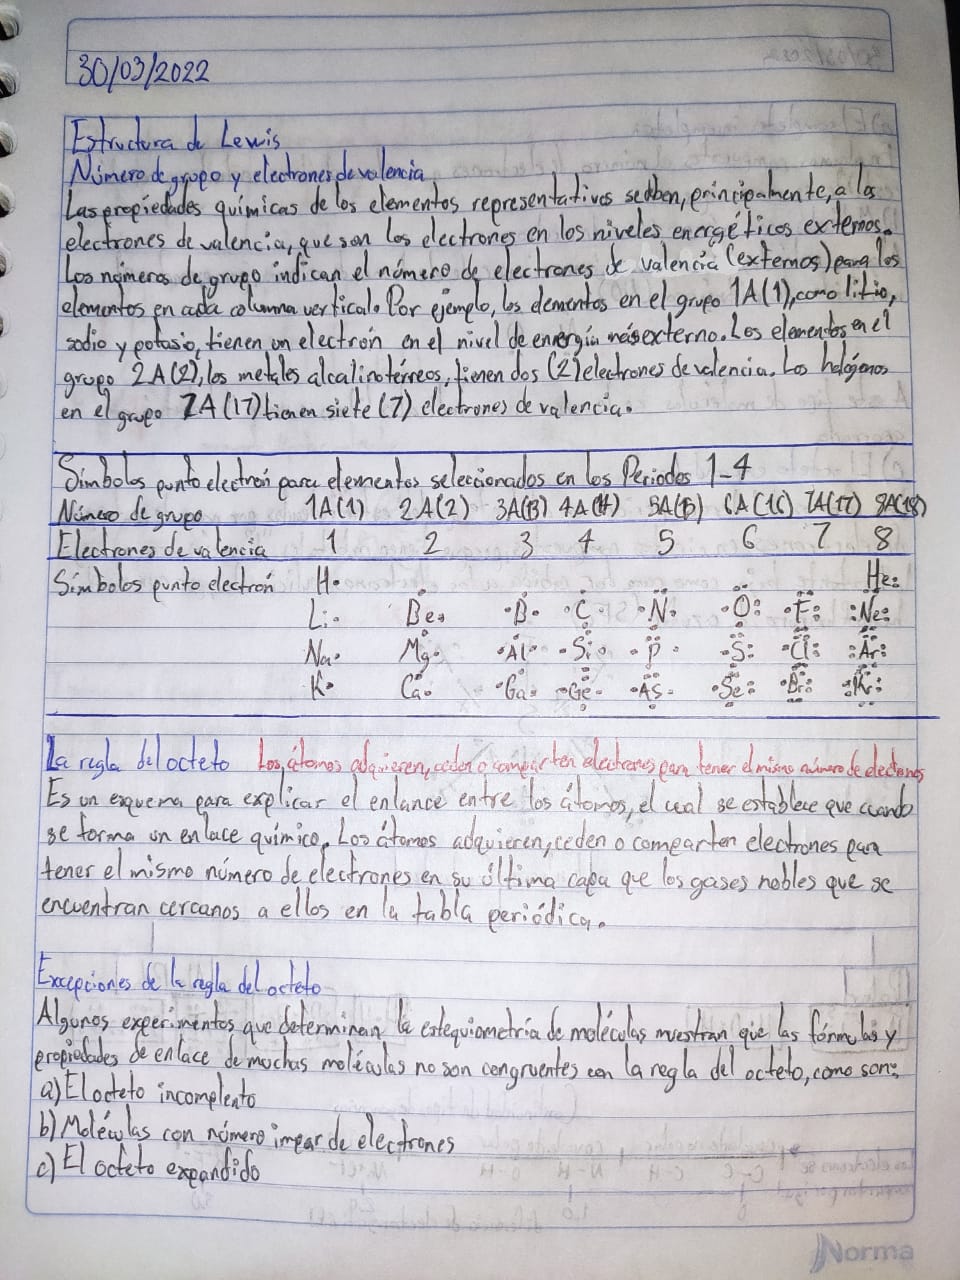 30/03/2022
Estructura de Lewis
Número de grupo y electrones de valencia
Las propiedades químicas de los elementos representativos se deben, principalmente, a los
electrones de valencia, que son los electrones en los niveles energéticos externos.
Los números de grupo indican el número de electrones de valencia (externos) para los
elementos en cada columna vertical. Por ejemplo, los elementos en el grupo 1A(1), como litio,
sodio y potasio, tienen un electrón en el nivel de energía más externo. Los elementos en el
grupo 2A(2), los metales alcalinotérreos, tienen dos (2) electrones de valencia. Los halógenos
en el grupo 7A(17) tienen siete (7) electrones de valencia.
Símbolos punto electrón para elementos seleccionados en los Periodos 1-4
Número de grupo 1A(1) 2A(2) 3A(13) 4A(14) 5A(15) 6A(16) 7A(17) 8A(18)
Electrones de valencia 1 2 3 4 5 6 7 8
Símbolos punto electrón H· He:
Li· Be· ·B· ·C· ·N· ·O: ·F: :Ne:
Na· Mg· ·Al· ·Si· ·P· ·S: ·Cl: :Ar:
K· Ca· ·Ga· ·Ge· ·As· ·Se: ·Br: :Kr:
La regla del octeto Los átomos adquieren, ceden o comparten electrones para tener el mismo número de electrones
Es un esquema para explicar el enlance entre los átomos, el cual se establece que cuando
se forma un enlace químico. Los átomos adquieren, ceden o comparten electrones para
tener el mismo número de electrones en su última capa que los gases nobles que se
encuentran cercanos a ellos en la tabla periódica.
Excepciones de la regla del octeto
Algunos experimentos que determinan la estequiometría de moléculas muestran que las fórmulas y
propiedades de enlace de muchas moléculas no son congruentes con la regla del octeto, como son:
a) El octeto incompleto
b) Moléculas con número impar de electrones
c) El octeto expandido
Norma